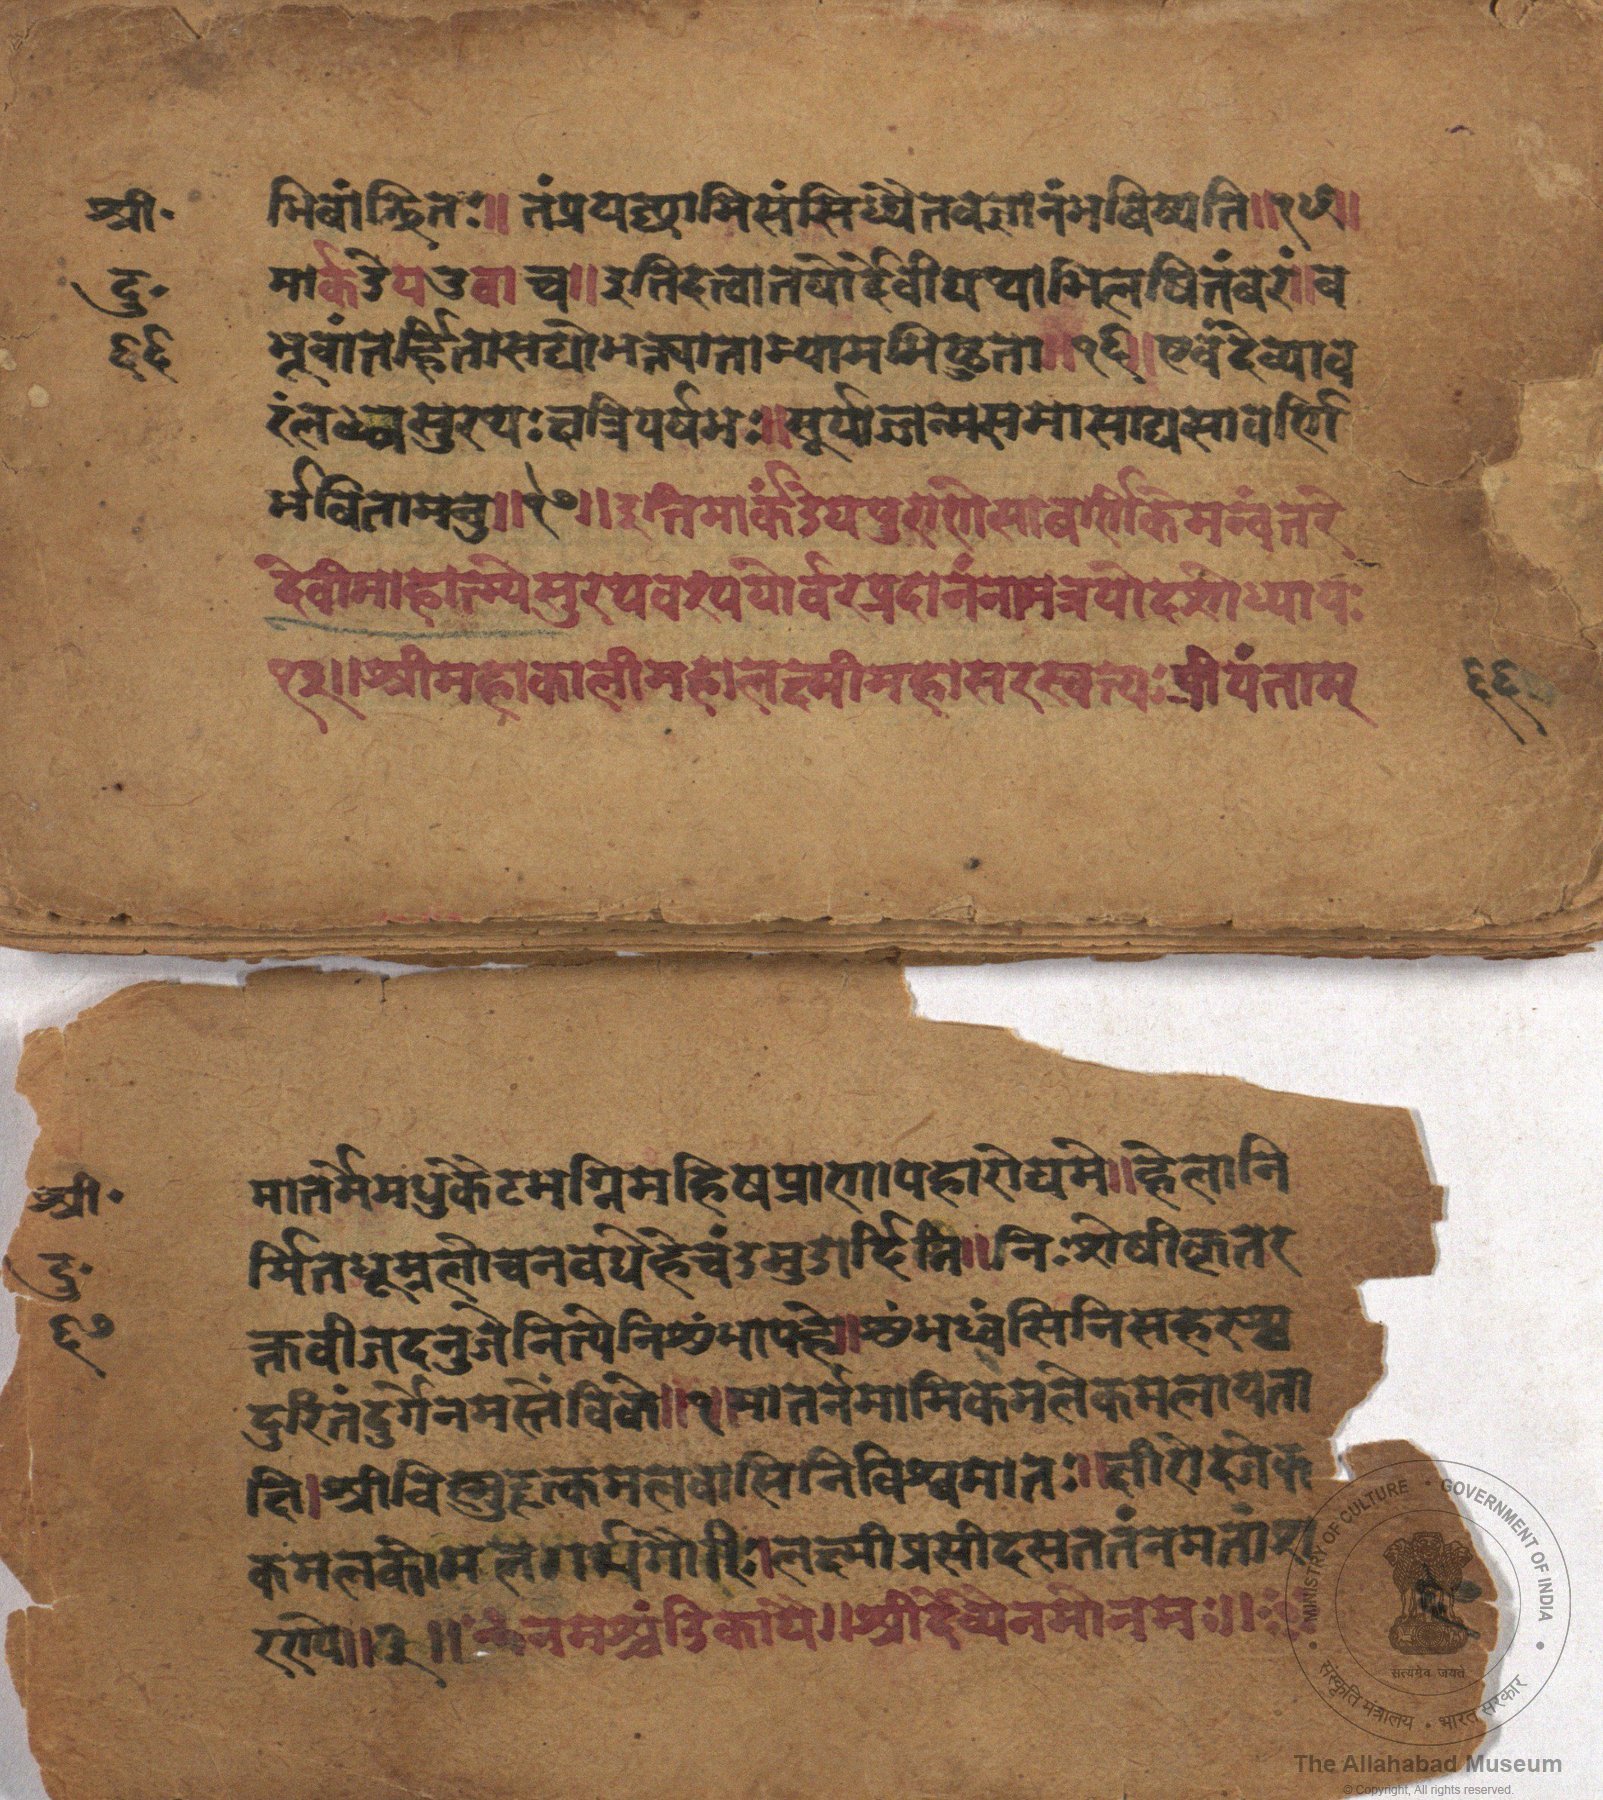 श्री॰
दु॰
६६
भिवांछितः॥ तंप्रयछामिसंसिध्यैतवज्ञानंभविष्यति॥१५॥
मार्कंडेयउवाच॥इतिदत्वातयोर्देवीयथाभिलषितंवरं॥ब
भूवांतर्हितासद्योभक्त्याताभ्यामभिष्टुता॥१६॥एवंदेव्याव
रंलब्ध्वासुरथःक्षत्रियर्षभः॥सूर्याज्जन्मसमासाद्यसावर्णि
र्भवितामनु॥१७॥इतिमार्कंडेयपुराणेसावर्णिकेमन्वंतरे
देवीमाहात्म्येसुरथवैश्ययोर्वरप्रदानंनामत्रयोदशोध्यायः
१३॥श्रीमहाकालीमहालक्ष्मीमहासरस्वत्यःप्रीयंताम्
६६
श्री॰
दु॰
६७
मातर्मेमधुकैटभघ्निमहिषप्राणापहारोद्यमे॥हेलानि
र्मितधूम्रलोचनवधेहेचंडमुंडार्दिनि॥निःशेषीकृतर
क्तबीजदनुजेनित्येनिशुंभापहे॥शुंभध्वंसिनिसंहराशु
दुरितंदुर्गेनमस्तेंबिके॥१॥मातर्नमामिकमलेकमलायता
क्षि।श्रीविष्णुहृत्कमलवासिनिविश्वमातः॥क्षीरोदजेक
कमलकोमलगर्भगौरि॥लक्ष्मीप्रसीदसततंनमतांश
रण्ये॥२॥ॐनमश्चंडिकायै॥श्रीदेव्यैनमोनमः॥
MINISTRY OF CULTURE • GOVERNMENT OF INDIA
सत्यमेव जयते
संस्कृति मंत्रालय • भारत सरकार
The Allahabad Museum
© Copyright, All rights reserved.